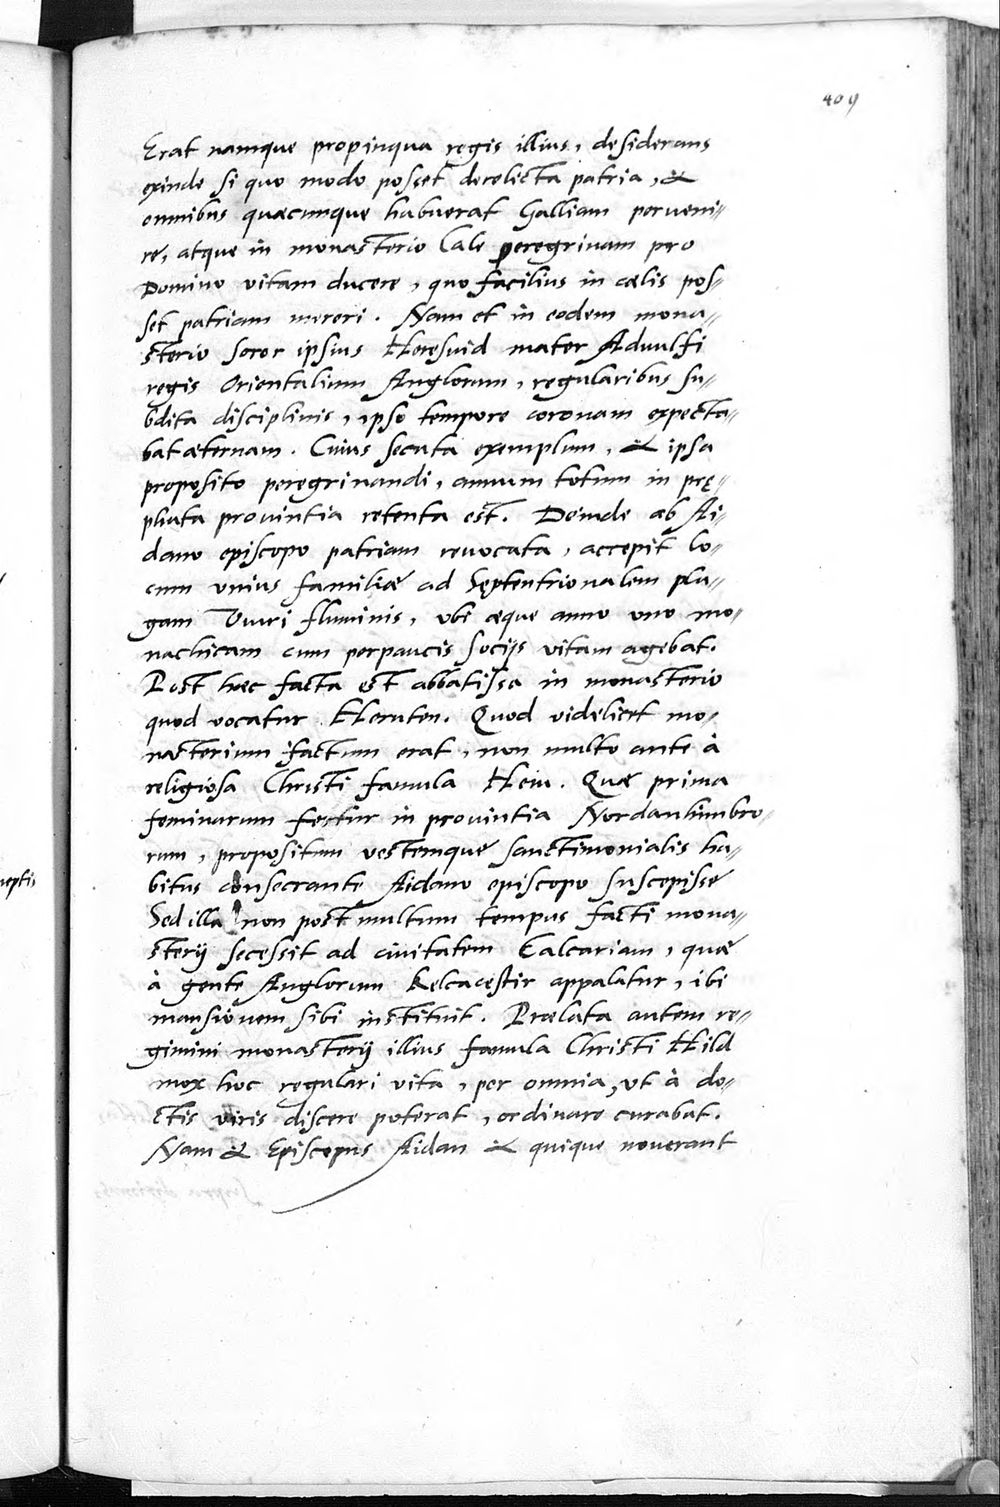 409
Erat namque propinqua regis illius, desiderans
exinde si quo modo posset derelicta patria, &
omnibus quæcunque habuerat Galliam perveni-
re, atque in monasterio Cale peregrinam pro
Domino vitam ducere, quo facilius in cælis pos-
set patriam mereri. Nam et in eodem mona-
sterio soror ipsius Heresuid mater Aduulfi
regis Orientalium Anglorum, regularibus su-
bdita disciplinis, ipso tempore coronam expecta-
bat æternam. Cuius secuta exemplum, & ipsa
proposito peregrinandi, annum totum in prę-
phata provintia retenta est. Deinde ab Ai-
dano episcopo patriam revocata, accepit lo-
cum unius familiæ ad Septentrionalem pla-
gam Viuri fluminis, ubi æque anno uno mo-
nachicam cum perpaucis socijs vitam agebat.
Post hæc facta est abbatissa in monasterio
quod vocatur Heruten. Quod videlicet mo-
nasterium factum erat, non multo ante à
religiosa Christi famula Heiu. Quæ prima
feminarum fertur in provintia Nordanhimbro-
rum, propositum vestemque sanctimonialis ha-
bitus consecrante Aidano episcopo suscepisse
Sed illa non post multum tempus facti mona-
sterij secessit ad civitatem Calcariam, quæ
à gente Anglorum Kelcacestir appalatur, ibi
mansionem sibi instituit. Prælata autem re-
gimini monasterij illius famula Christi Hild
mox hoc regulari vita, per omnia, ut à do-
ctis viris discere poterat, ordinare curabat.
Nam & Episcopus Aidan & quique noverant